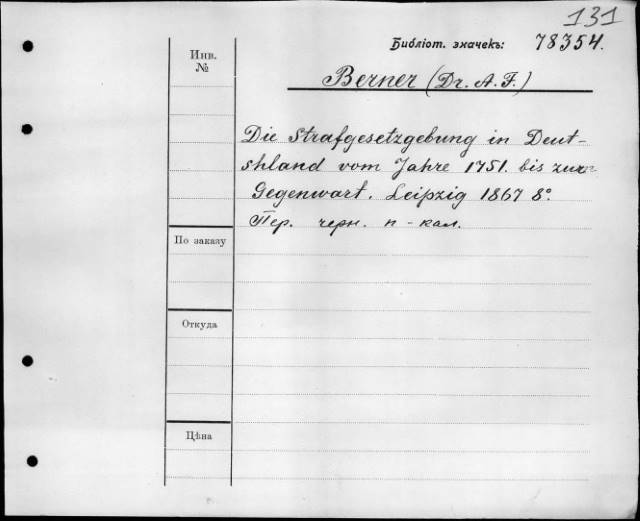 131
Библіот. значекъ: 78354.
Инв.
№
Berner (Dr. A. F.)
Die Strafgesetzgebung in Deut-
shland vom Jahre 1751. bis zur
Gegenwart. Leipzig 1867 8°.
Пер. черн. п-кал.
По заказу
Откуда
Цѣна